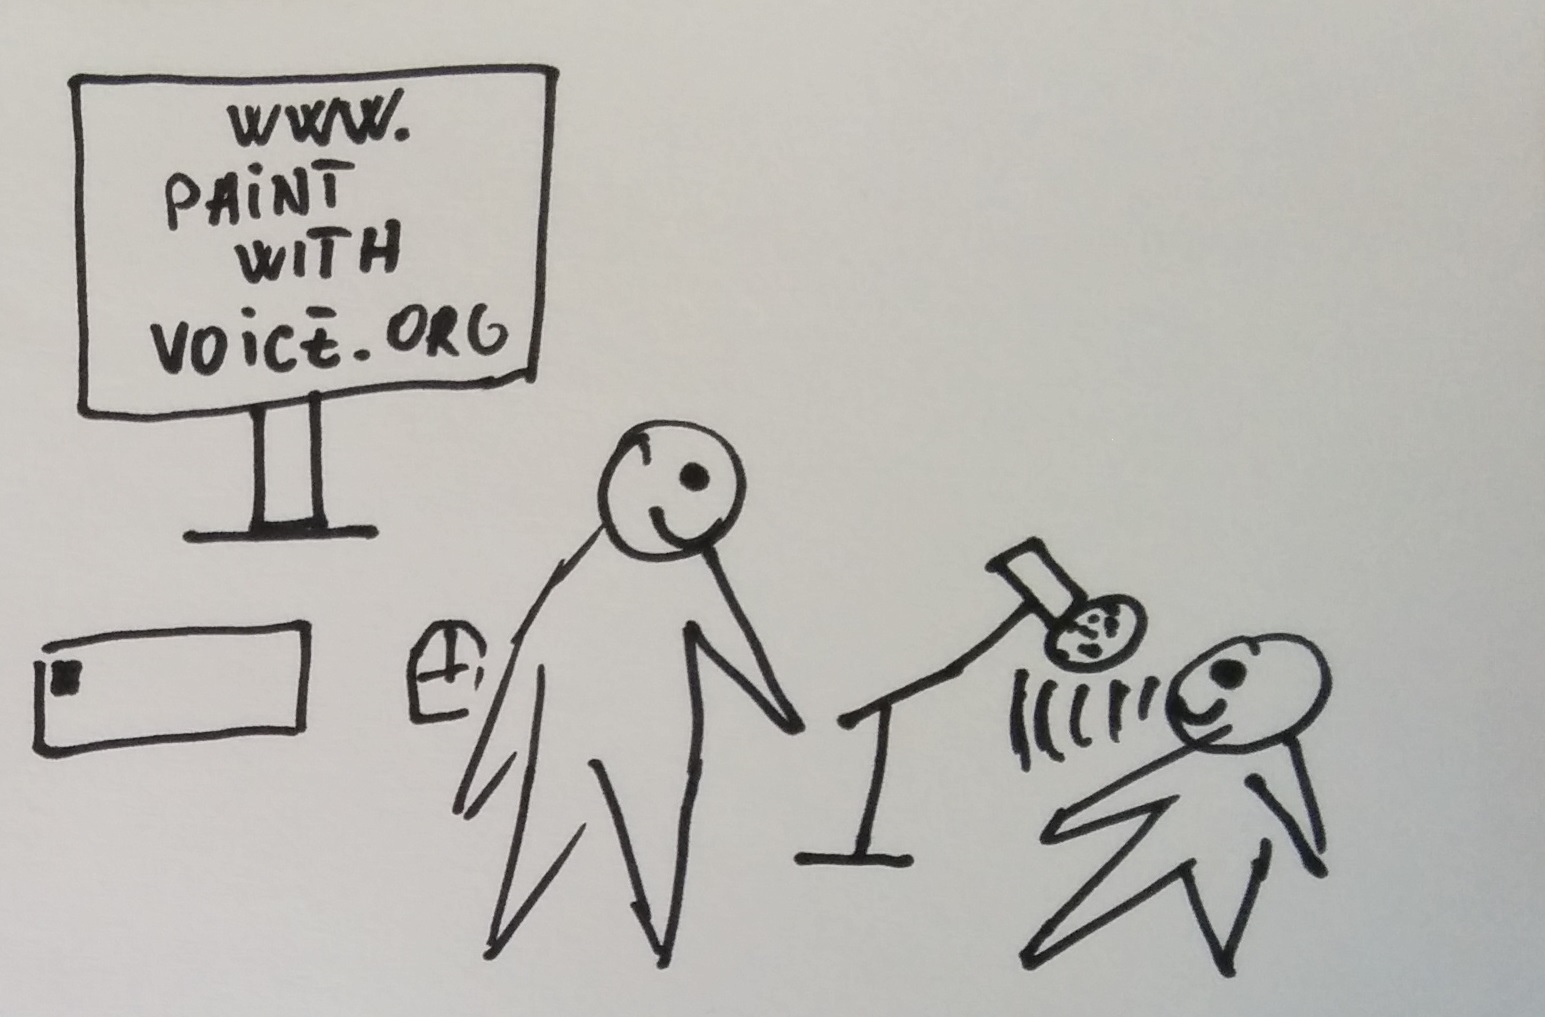 WWW.
PAINT
WITH
VOICE.ORG